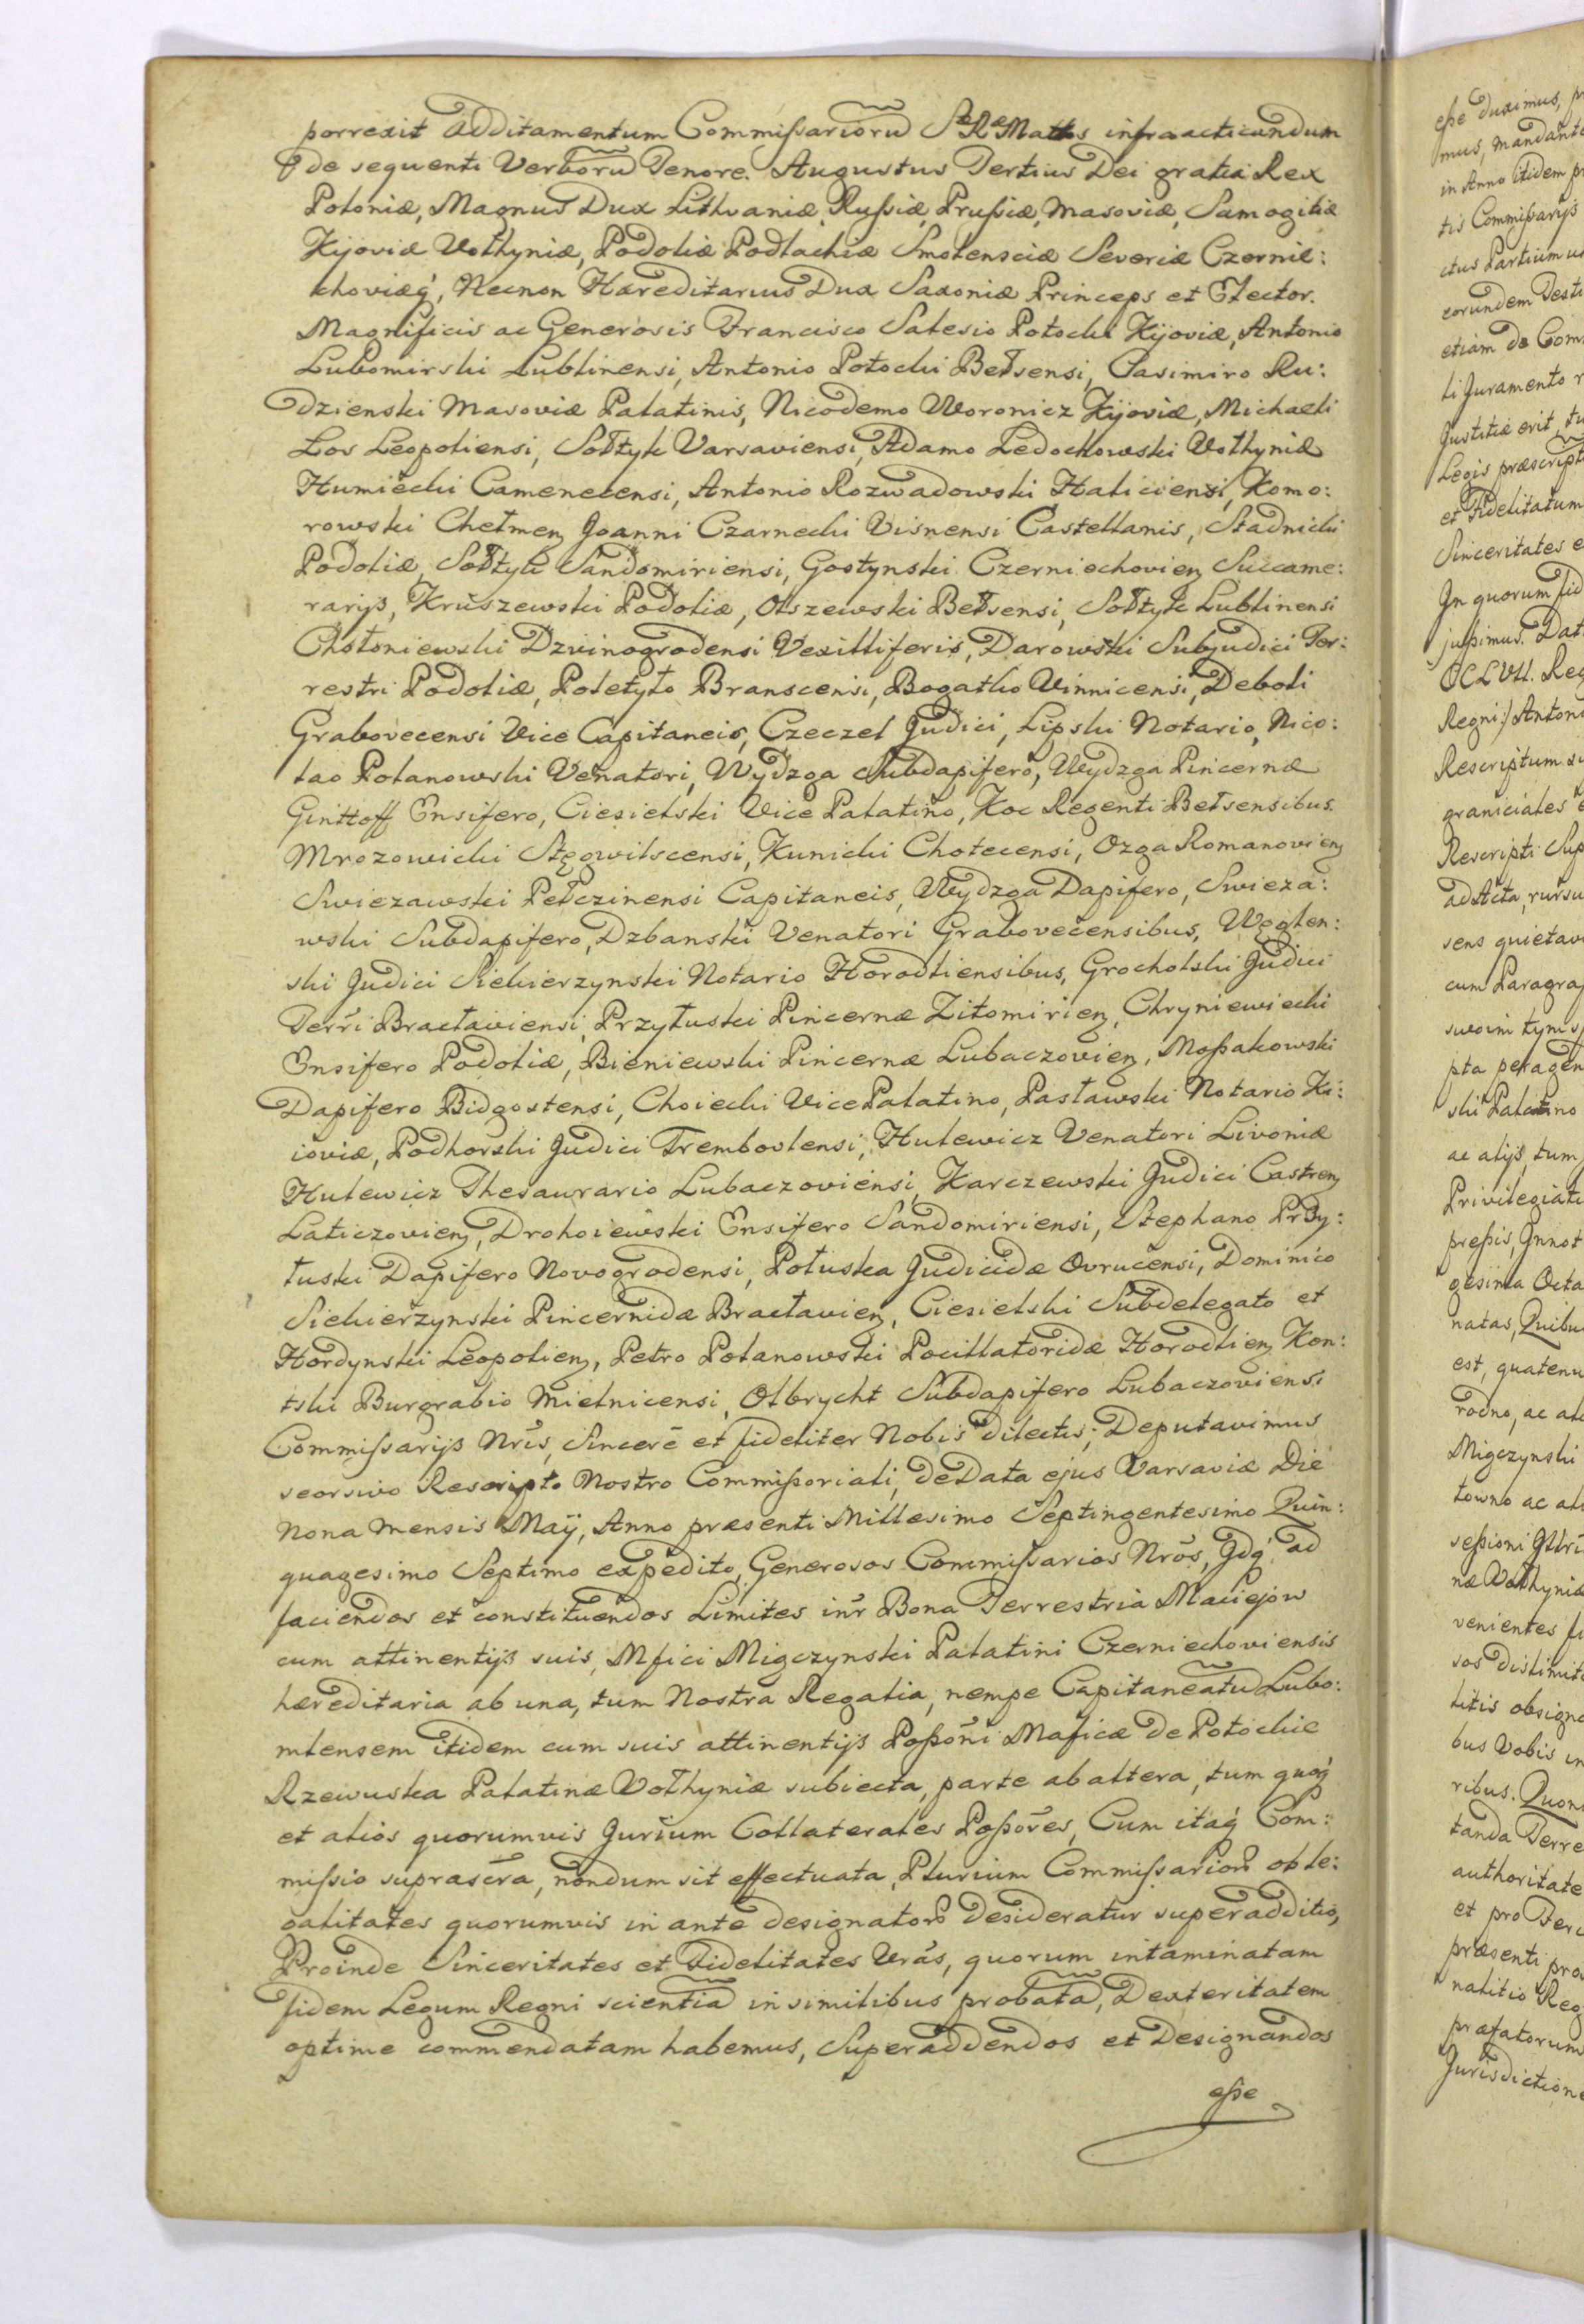 porrexit Additamentum Commißarioru SæRæMattis infraacticandum
de sequenti Verboru Tenore. Augustus Tertius Dei gratia Rex
Poloniæ, Magnus Dux Lithvaniæ, Rußiæ, Prußiæ, Masoviæ, Samogitiæ
Kijoviæ Volhyniæ, Podoliæ Podlachiæ Smolensciæ Severiæ Czernie:
choviæq', Necnon Hæreditarius Dux Saxoniæ Princeps et Elector.
Magnificis ac Generosis Francisco Salesio Potocki Kijoviæ, Antonio
Lubomirski Lublinensi, Antonio Potocki Bełsensi, Casimiro Ru:
dzienski Masoviæ Palatinis, Nicodemo Woronicz Kijoviæ, Michaeli
Łos Leopoliensi, Sołtyk Varsaviensi, Adamo Ledochowski Volhyniæ
Humiecki Camenecensi, Antonio Rozwadowski Haliciensi, Komo:
rowski Chełmen Joanni Czarnecki Visnensi Castellanis, Stadnicki
Podoliæ, Sołtyk Sandomiriensi, Gostynski Czerniechovien Succame:
rarijs, Kruszewski Podoliæ, Olszewski Bełsensi, Sołtyk Lublinensi
Chołoniewski Dzvinogrodensi Vexilliferis, Darowski Subjudici Ter:
restri Podoliæ, Poletyło Branscensi, Bogatko Vinnicensi, Deboli
Grabovecensi Vice Capitaneis, Czeczel Judici, Lipski Notario, Nico:
lao Polanowski Venatori, Wydzga Subdapifero, Wydzga Pincernæ
Ginttoff Ensifero, Ciesielski Vice Palatino, Koc Regenti Bełsensibus.
Mrozowicki Stęgwilscensi, Kunicki Chotecensi, Ozga Romanovien
Swiezawski Pełczinensi Capitaneis, Wydzga Dapifero, Swieza:
wski Subdapifero, Dzbanski Venatori Grabovecensibus, Węglen:
ski Judici Siekierzynski Notario Horodliensibus, Grocholski Judici
Terri Bracłaviensi, Przyłuski Pincernæ Zitomirien, Chryniewiecki
Ensifero Podoliæ, Bieniewski Pincernæ Lubaczovien, Moßakowski
Dapifero Bidgostensi, Choiecki VicePalatino, Pasławski Notario Ki:
ioviæ, Podhorski Judici Trembovlensi, Hulewicz Venatori Livoniæ
Hulewicz Thesaurario Lubaczoviensi, Karczewski Judici Castren
Laticzovien, Drohoiewski Ensifero Sandomiriensi, Stephano Przy:
łuski Dapifero Novogrodensi, Połuska Judicidæ Ovrucensi, Dominico
Siekierzynski Pincernidæ Bracłavien, Ciesielski Subdelegato et
Hordynski Leopolien, Petro Polanowski Pocillatoridæ Horodlien, Kon:
tski Burgrabio Mielnicensi, Olbrycht Subdapifero Lubaczoviensi
Commißarijs Nris, Sincere et fideliter Nobis dilectis; Deputavimus
seorsivo Rescripto Nostro Commißoriali, de Data ejus Varsaviæ Die
Nona mensis Maij, Anno præsenti Millesimo Septingentesimo Quin:
quagesimo Septimo expedito, Generosos Commißarios Nros, Jdq' ad
faciendos et constituendos Limites inr Bona Terrestria Maciejow
cum attinentijs suis, Mfici Migczynski Palatini Czerniechoviensis
hæreditaria ab una, tum Nostra Regalia, nempe Capitaneatu Lubo:
mlensem itidem cum suis attinentijs Poßoni Maficæ de Potockie
Rzewuska Palatinæ Volhyniæ subiecta, parte ab altera, tum quoq'
et alios quorumvis Jurium Collaterales Poßores, Cum itaq' Com:
mißio suprascra, nondum sit effectuata, Plurium Commißarior ob le:
galitates quorumvis in ante designator desideratur superadditio,
Proinde Sinceritates et Fidelitates Vras, quorum intaminatam
fidem Legum Regni scientia in similibus probata, Dexteritatem
optime commendatam habemus, Superaddendos et Designandos
eße